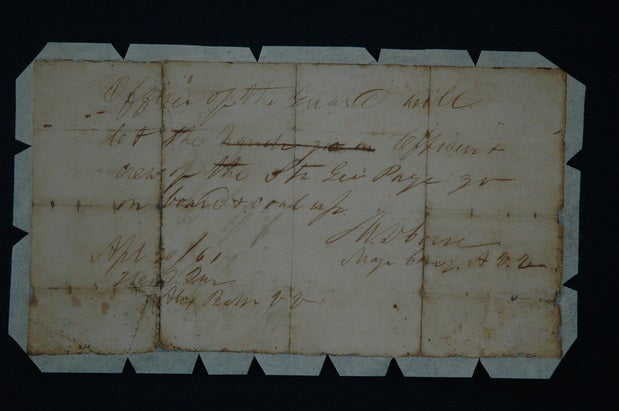 Officer of the Guard will
let the Officers &
crew of the Str Geo Page go
on board & coal up
Apl /61
Head Qrs
Alex Batn V. V.
Maj Comg A. V. V.